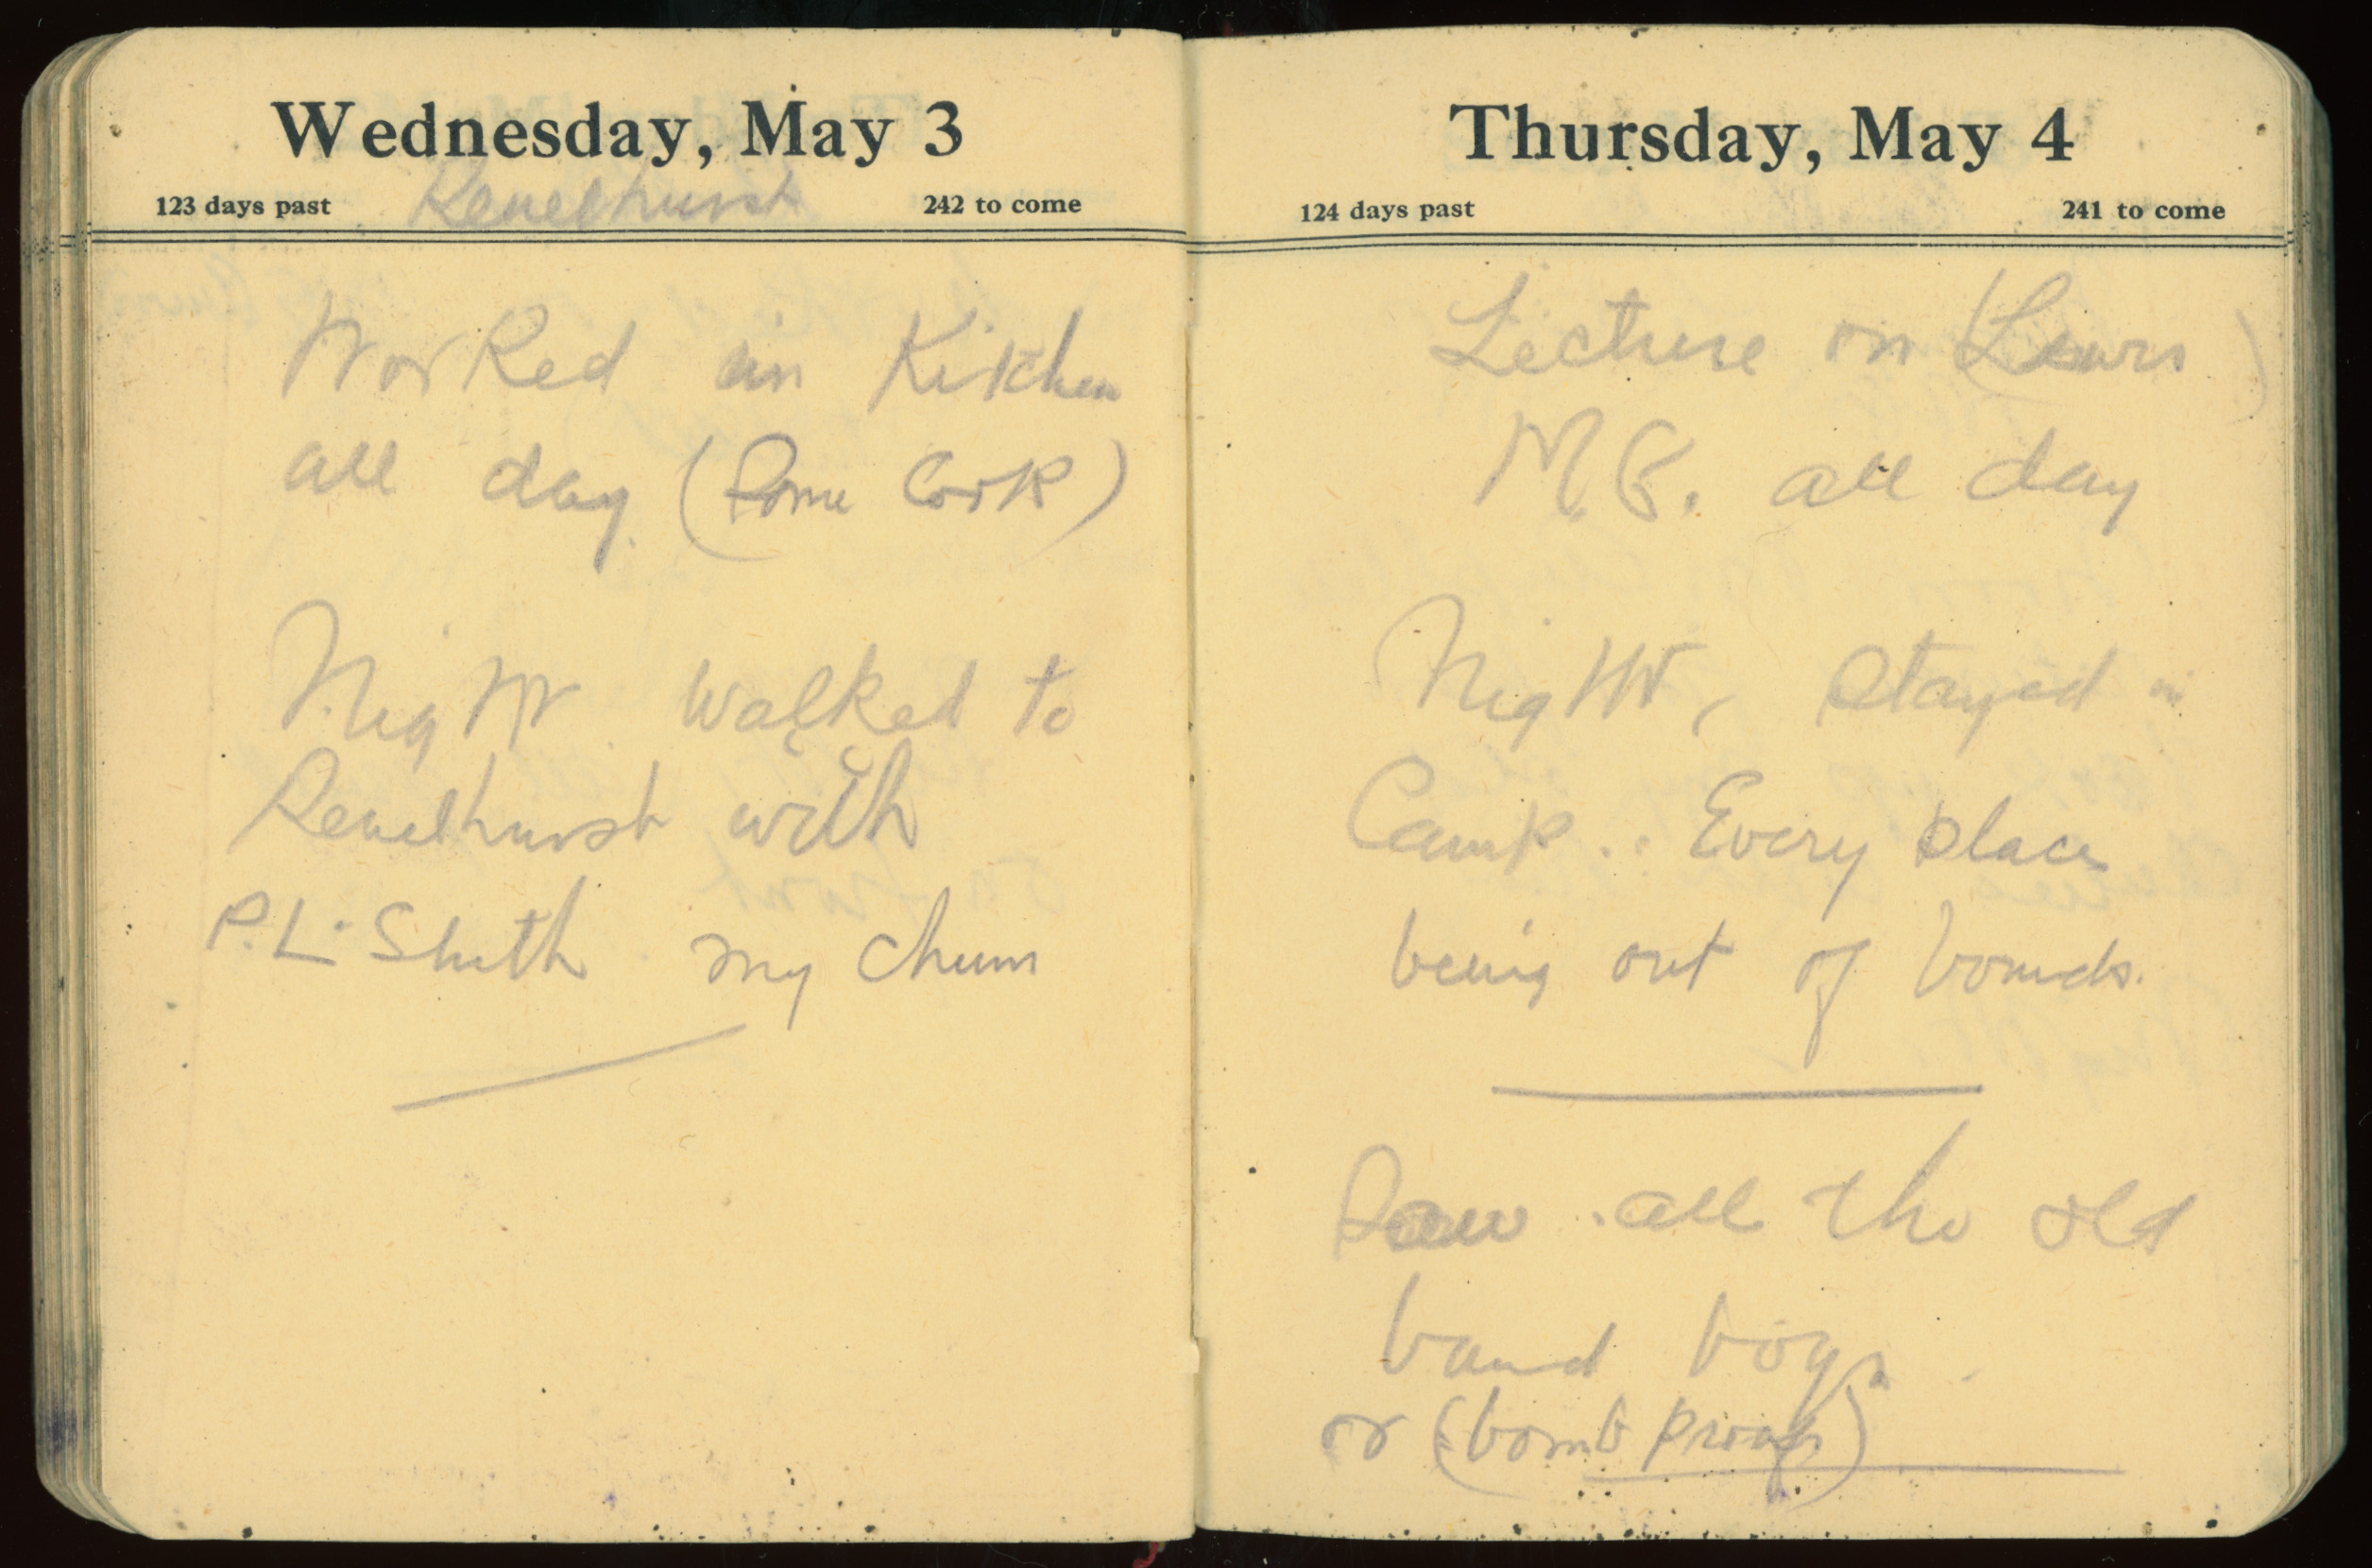 Wednesday, May 3
123 days past Renelhurst 242 to come
Worked in Kitchen
all day. (Some Cook)
Night walked to
Renelhurst with
P.L. Sluth my chum
Thursday, May 4
124 days past 241 to come
Lecture on (Lewis)
M G. all day
Night, Stayed in
Camp.. Every place
being out of bounds.
Saw all the old
band boys
or (bomb proofs)